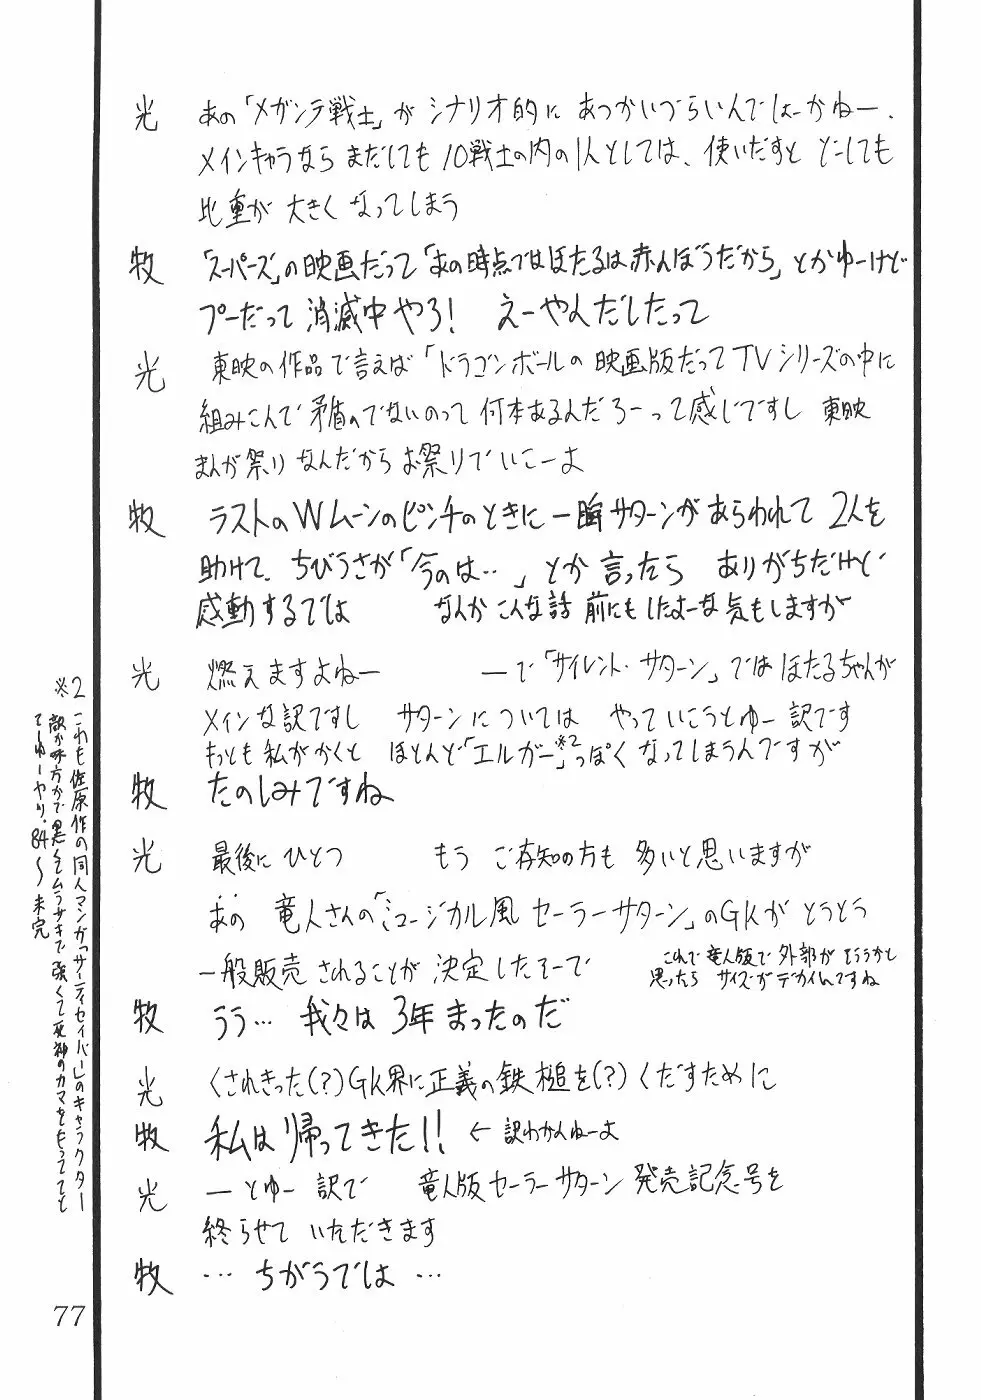 光 あの「メガンテ戦士」がシナリオ的に あつかいづらいんでしょーかねー、
メインキャラなら まだしても 10戦士の内の1人としては、使いだすと どーしても
比重が 大きく なってしまう
牧 「スーパーズ」の映画だって「あの時点ではほたるは赤んぼうだから」とかゆーけど
プーだって 消滅中やろ! えーやんだしたって
光 東映の作品で言えば「ドラゴンボールの映画版だってTVシリーズの中に
組みこんで矛盾のでないのって 何本あるんだろーって感じですし 東映
まんが祭りなんだから お祭りでいこーよ
牧 ラストのWムーンのピンチのときに 一瞬サターンがあらわれて 2人を
助けて、ちびうさが「今のは‥」とか 言ったら ありがちだけど
感動するでは なんか こんな話 前にもしたよーな気もしますが
光 燃えますよねー ーで「サイレント・サターン」ではほたるちゃんが
メインな訳ですし サターンについては やっていこうとゆー訳です
もっとも私がかくと ほとんど「エルガー」※2っぽくなってしまうんですが
牧 たのしみですね
光 最後に ひとつ もう ご存知の方も 多いと思いますが
あの 竜人さんの「ミュージカル風 セーラーサターン」のGKが とうとう
一般販売 されることが 決定したそーで
これで竜人版で 外部が そろうかと
思ったら サイズが デカイんですね
牧 うう… 我々は 3年まったのだ
光 くされきった(?)GK界に正義の鉄槌を(?)くだすために
牧 私は 帰ってきた!! ← 訳わかんねーよ
光 ーとゆー 訳で 竜人版セーラーサターン 発売記念号を
終らせて いただきます
牧 … ちがうでは …
※2 これも佐原作の同人マンガ「サイティセイバー」のキャラクター
敵か味方かで黒くてムラサキで強くて死神のカマをもってると
てーゆーヤツ。84〜未完
77